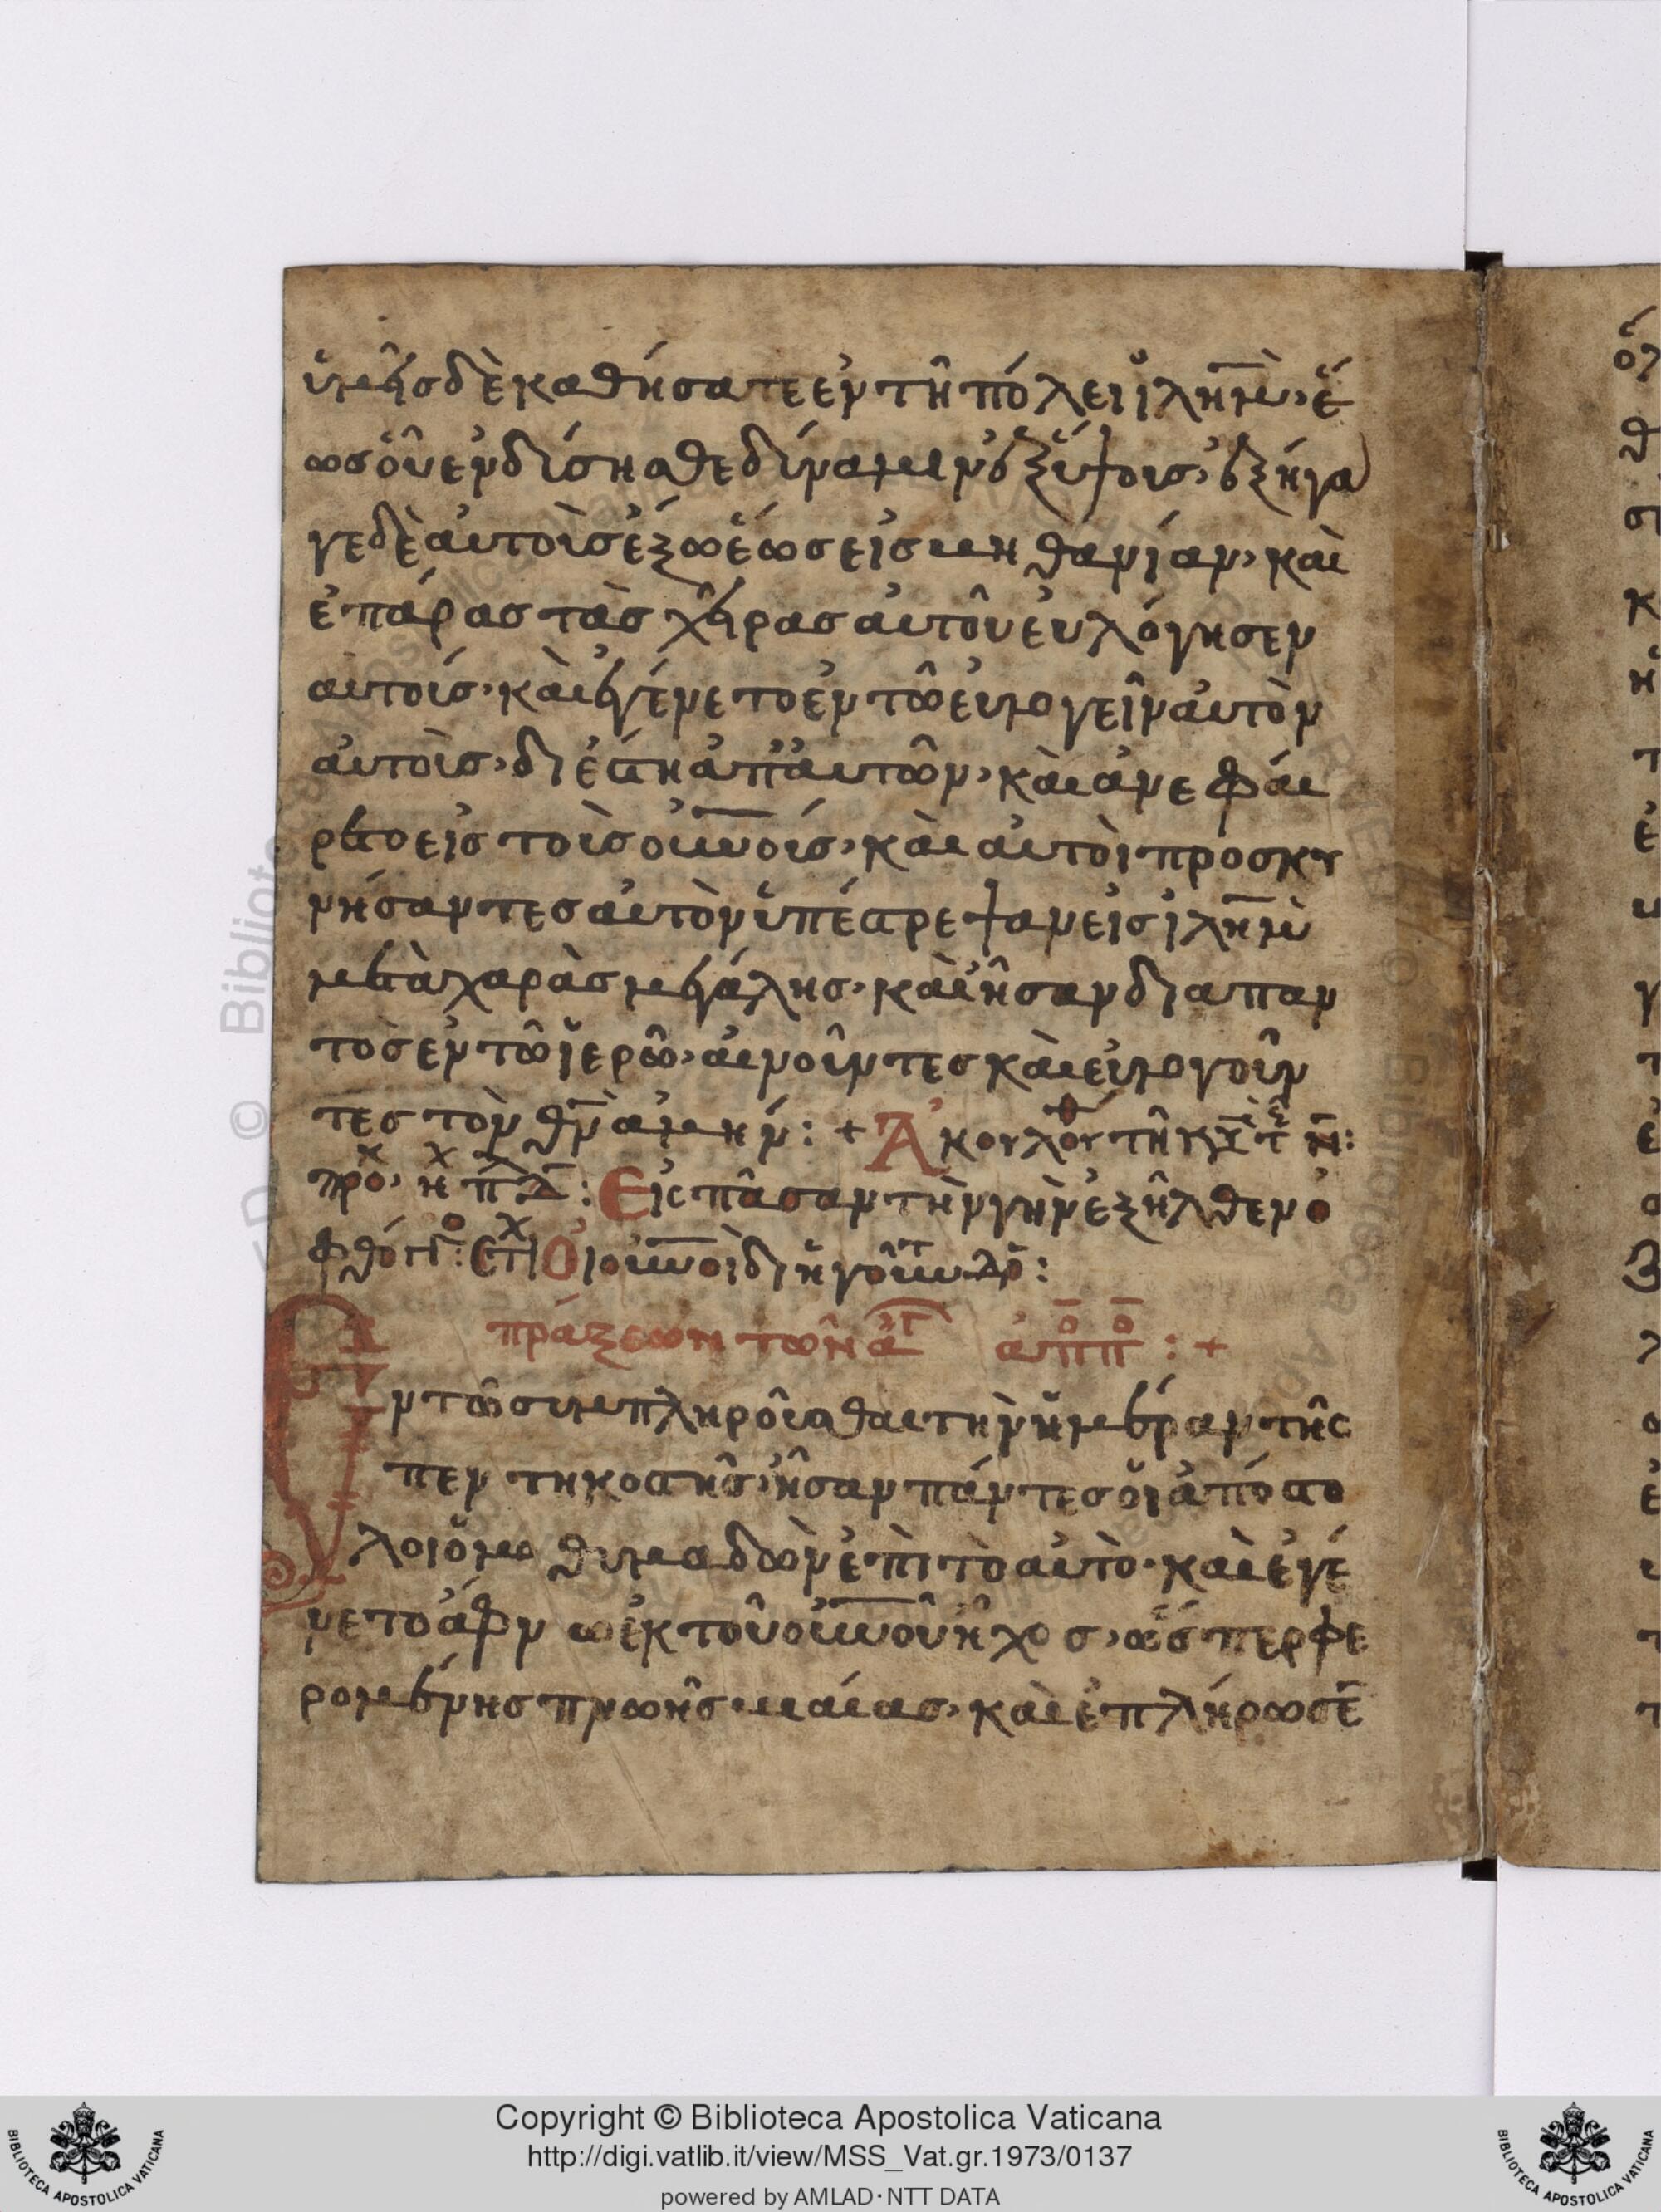 ὑμεῖς δὲ καθήσατε ἐν τῆ πόλει ἰλημ· ἕ
ως οὗ ἐνδύσησθε δύναμιν ἐξ ὕψους· ἐξήγα
γε δὲ αὐτοὺς ἔξω ἕως εἰς βηθανίαν· καὶ
ἐπάρας τὰς χεῖρας αὐτοῦ εὐλόγησεν
αὐτούς· καὶ ἐγένετο ἐν τῶ εὐλογεῖν αὐτὸν
αὐτοὺς· διέστη ἀπ' αὐτῶν· καὶ ἀνεφέ
ρετο εἰς τοὺς οὐνούς· καὶ αὐτοὶ προσκυ
νήσαντες αὐτὸν ὑπέστρεψαν εἰς ἰλημ
μετὰ χαρὰς μεγάλης· καὶ ἦσαν διαπαν
τὸς ἐν τῶ ἱερῶ· αἰνοῦντες καὶ εὐλογοῦν
τες τὸν θν ἀμήν: + Ἀκολου τῆ κυ τ ν:
προ· η πλ δ: Εἰς πᾶσαν τὴν γὴν ἐξῆλθεν ὁ
φθόγγο: στι Οἱ οὐνοὶ διηγοῦντ δο:
πράξεων τῶν ἁγ ἀποπο: +
Ἐν τῶ συμπληροῦσθαι τὴν ἡμέραν τῆς
πεντηκοστῆς· ἦσαν πάντες οἱ ἀπόστο
λοι ὁμοθυμαδὼν ἐπὶ τὸ αὐτὸ· καὶ ἐγέ
νετο ἄφνω ἐκ τοῦ οὐνοῦ ἦχος· ὥσπερ φε
ρομένης πνωῆς βιαίας· καὶ ἐπλήρωσε
Copyright © Biblioteca Apostolica Vaticana
http://digi.vatlib.it/view/MSS_Vat.gr.1973/0137
powered by AMLAD·NTT DATA
BIBLIOTECA APOSTOLICA VATICANA
BIBLIOTECA APOSTOLICA VATICANA